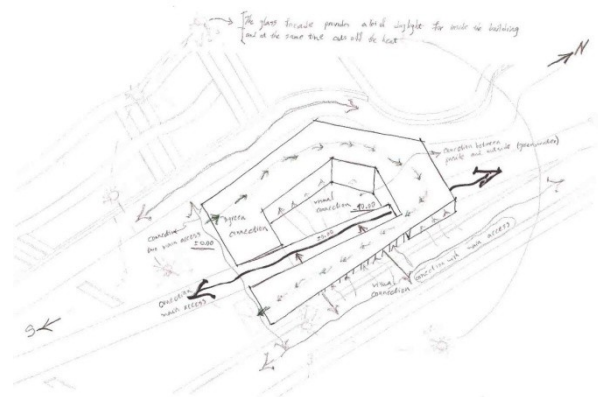 The glass facade provides a lot of daylight for inside the building
and at the same time
the heat
N
connection between
inside and outside
visual
connection
±0.00
green
connection
connection
main access
±0.00
±0.00
connection
main access
visual
connection
connection with main access
S